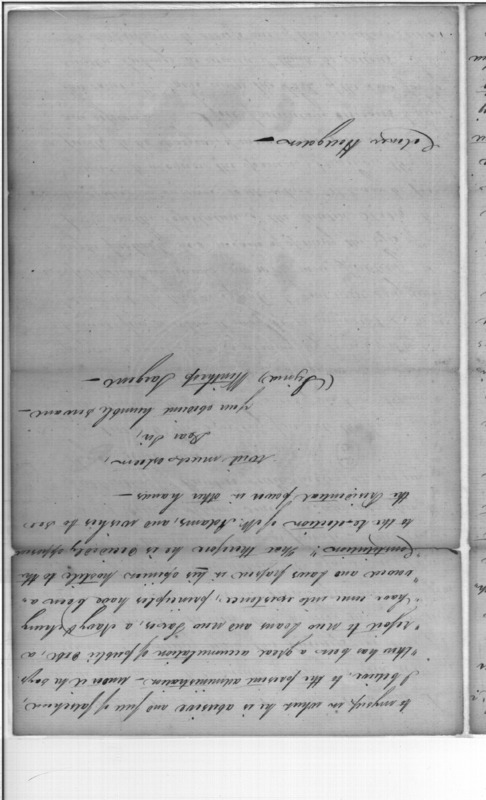 to myself, in what he is abusive and full of falsehood,
I believe, to the present administration — under it he says
"there has been a great accumulation of public debt, a
"resort to new Loans and new Taxes, a Navy & Army
"have risen into existence, principles have been a-
"vowed and Laws passed in his opinion hostile to the
"Constitution". That therefore he is decidedly opposed
to the reelection of Mr. Adams, and wishes to see
the Presidential power in other hands —
With much esteem,
Dear Sir,
Your obedient humble servant —
(Signed) Winthrop Sargent —